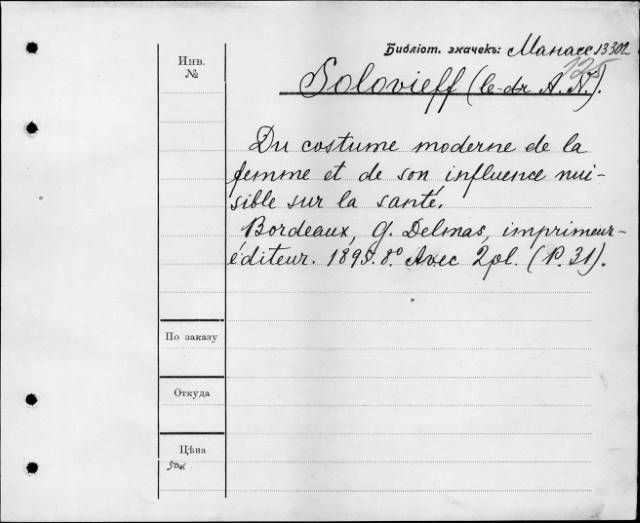 Библіот. значекъ: Манасс 13302
125
Инв.
№
Solovieff (le dr A. N.).
Du costume moderne de la
femme et de son influence nui-
sible sur la santé.
Bordeaux, G. Delmas, imprimeur-
éditeur. 1895. 8° Avec 2 pl. (P. 31).
По заказу
Откуда
Цѣна
50к